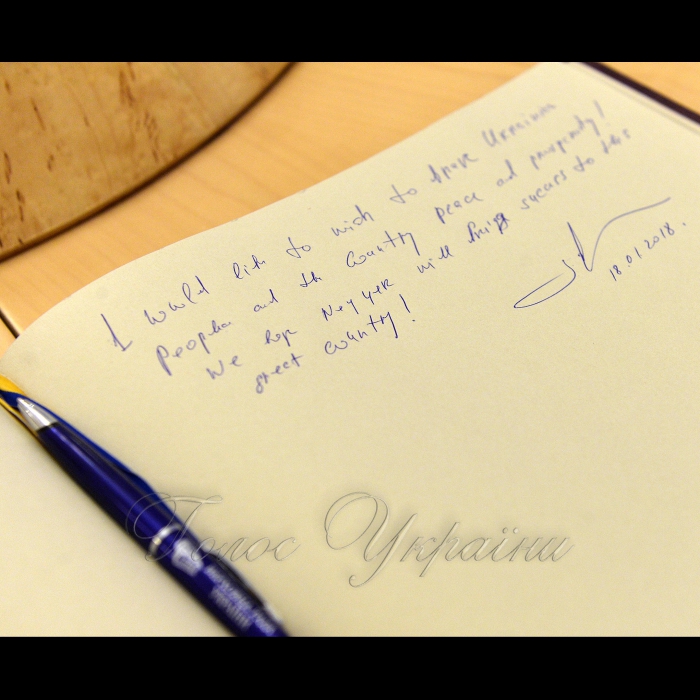 I would like to wish to brave Ukrainian
people and the country peace and prosperity!
We hope New year will bring success to this
great country!
18.01.2018.
Голос України